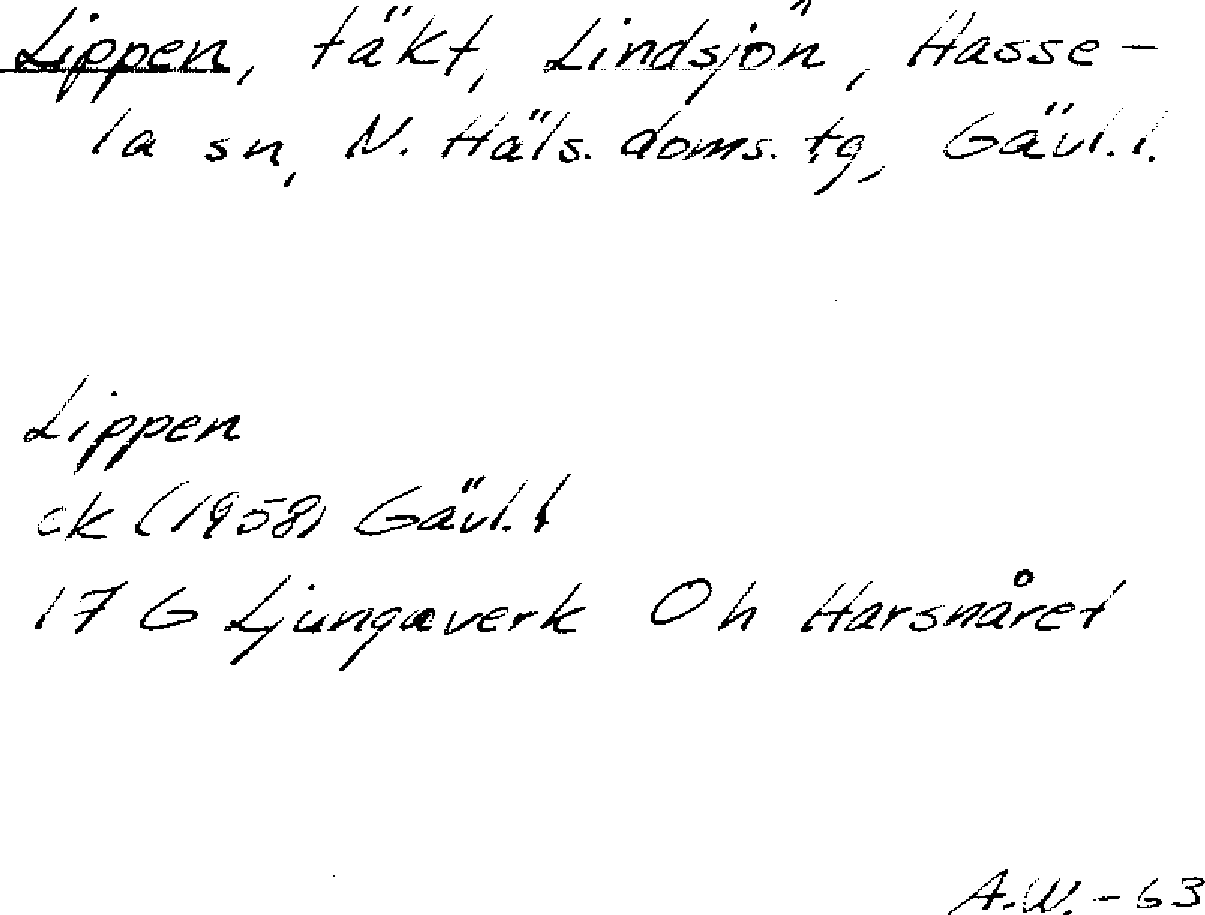 Lippen, täkt, Lindsjön, Hasse-
la sn, N. Häls. doms. tg, Gävl. l.
Lippen
ek (1958) Gävl. l
17 G Ljungaverk Oh Harsnåret
A.W. - 63